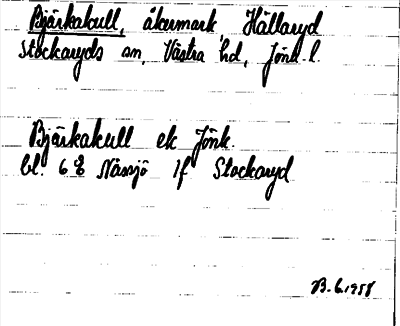 Bjärkakull, åkermark, Hållaryd
Stockaryds sn, Västra hd, Jönk. l.
Bjärkakull ek Jönk.
bl. 6 E Nässjö 1f Stockaryd
B. 6. 1958